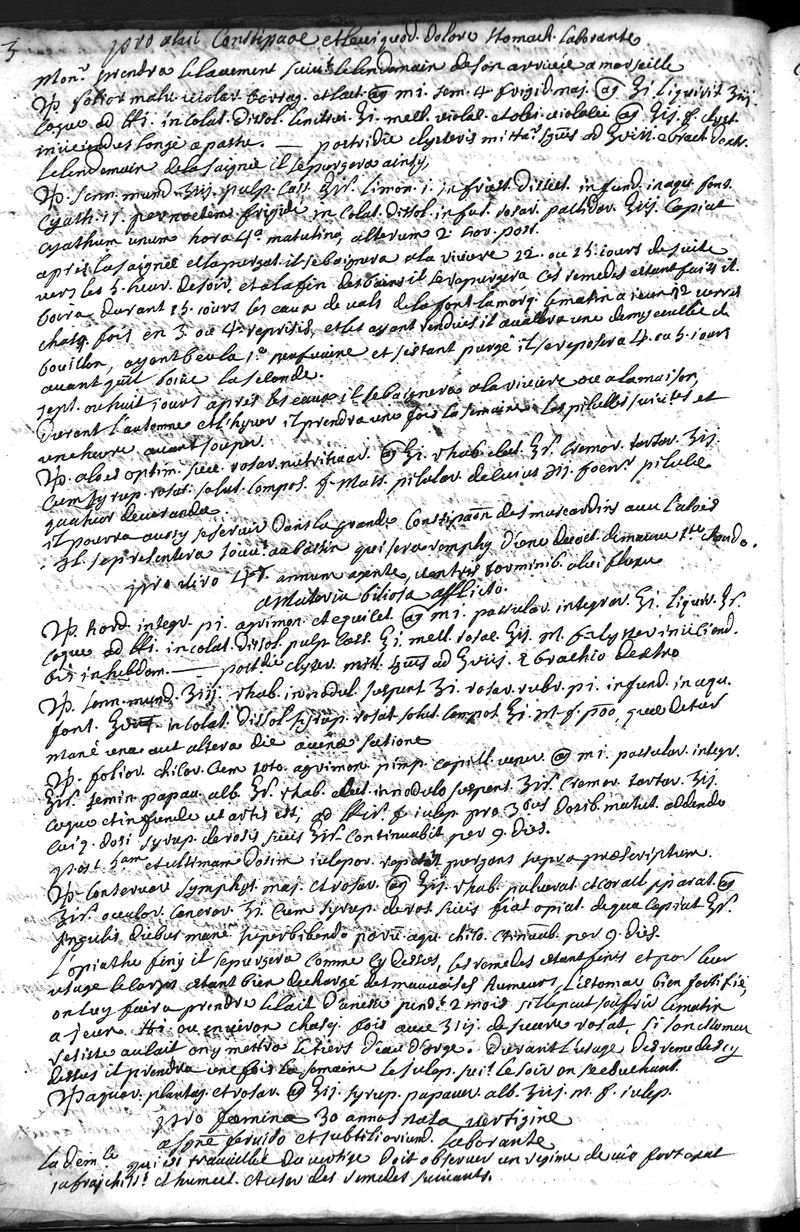 3 pro alvi Constipaõe et levi quod. dolore stomach. laborante
Monsr. prendra le lavement suivt. le lendemain de son arrivée a marseille
℞. folior malv. violar. borrag. et lact. aã m i. sem. 4 frigid. maj. aã ʒi. liquirit ʒiij.
Coque ad ℔i. in colat. dissol. lenitivi ℥i. mell. violat. et olei violacei aã ℥ij. f. clyst.
iniiciendus longè a pastu. — postridie clysteris mittar. sguis ad ℥viij. e brach. dextr.
Le lendemain de la saignée il se purgera ainsy,
℞. senn. mund. ʒiij. pulp. Cass. ℥ß. limon. i. in frust. dissect. infund. in aqu. font.
Cyath. ij. per noctem frigidè in colat. dissol. infus. rosar. pallidar. ℥iij. Capiat
cyathum unum hora 4a. matutina, alterum 2. hor. post.
apres la saignée et la purgat. il se baignera a la riviere 12. ou 15. jours de suite
vers les 5. heur. de soir, et a la fin des bains il se repurgera. Ces remedes estant faits il
boira durant 15. jours les eaux de vals de la font. la marq. le matin a jeun 12 verres
chasq. fois en 3. ou 4. reprises, et les ayant rendues il avallera une demy escuelle de
bouillon, ayant beu la 1e. neufvaine et s'estant purgé il se reposera 4. ou 5. jours
avant qu'il boive la seconde.
Sept. ou huit jours apres les eaux il se baignera a la riviere ou a la maison,
Durant l'automne et l'hyver il prendra une fois la semaine les pilules suivtes et
une heure avant souper.
℞. aloes optim. succ. rosar. nutrit. aã ʒi. rhab. elect. ʒß. cremor. tartar. ʒij.
Cum syrup. rosat. solut. compos. f. mass. pilular. de cuius ʒij. formr. pilulæ
quatuor devorandæ.
il pourra aussy se servir dans la grande Constipaõn des muscardins avec l'aloes
Il se presentera souvt. au bassin qui sera remply d'une decoct. de mauve tte chaude.
pro viro 48. annum agente, ventris torminib. alvi fluxu
a materia biliosa afflicto.
℞. hord. integr. p i. agrimon. et equiset. aã m i. passular. integrar. ℥i. liquir. ʒß.
Coque ad ℔i. in colat. dissol. pulp. Cass. ℥i. mell. rosac. ℥ij. m. f. clyster iniiciend.
bis in hebdom. — postridie clyster. mitt. sguis ad ℥viij. e brachio dextro
℞. senn. mund. ʒiij. rhab. in nodul. suspens. ʒi. rosar. rubr. p i. infund. in aqu.
font. in colat. dissol. syrup. rosat. solut. compos. ℥i. m. f. poõ, quæ detur
manè una aut altera die a venæ sectione
℞. folior. chicor. cum toto agrimon. pimp. capill. vener. aã m i. passular. integr.
℥ß. semin. papav. alb. ʒß. rhab. elect. in nodulo suspens. ʒiß. cremor. tartar. ʒij.
Coque et infunde ut artis est, ad ℔iß. f. julep. pro 3bus dosib. matut. addendo
cuiq. dosi syrup. de rosis siccis ℥ß. Continuabit per 9. dies.
Post 3am et ultimam dosim julepor. repetat purgans supra præscriptum.
℞. Conservar. symphyt. maj. et rosar. aã ℥ij. rhab. pulverat. et corall. pparat. aã
ʒiß. oculor. Cancror. ʒi. Cum syrup. de ros. siccis fiat opiat. de qua Capiat ʒß.
singulis diebus mane superbibendo parũ aqu. chico. Cõtinuab. per 9. dies.
L'opiathe finy il se purgera comme cy dessus, les remedes estant finis et par leur
usage le corps estant bien dechargé des mauvaises humeurs, l'estomac bien fortifié,
on luy faira prendre le lait d'anesse pendt. 2 mois s'il le peut souffrir le matin
a jeun ℔i. ou environ chasq. fois avec ʒiij. de sucre rosat, si son estomac
resiste au lait on y mettra le tiers d'eau d'orge. Durant l'usage des remedes cy
dessus il prendra une fois la semaine le julep. suit. le soir en se couchant.
℞ aquar. plantag. et rosar. aã ℥ij. syrup. papaver. alb. ʒiij. m. f. julep.
pro fœmina 30 annos nata vertigine
a sgne fervido et subtiliorũ. laborante
La demlle qui est travaillée du vertige doit observer un regime de vie fort exat
rafraichisst. et humect. et user des remedes suivants.